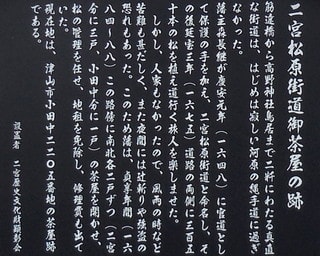 二宮松原街道御茶屋の跡
筋違橋から高野神社鳥居まで二軒にわたる真直
な街道は、はじめは寂しい河原の縄手道に過ぎ
なかった。
藩主森長継が慶安元年（一六四八）に官道とし
て保護の手を加え、二宮松原街道と命名し、そ
の後延宝三年（一六七五）道路の両側に三百五
十本の松を植え道行く旅人を楽しませた。
しかし、人家もなかったので、風雨の時など
苦難も甚だしく、また夜間には辻斬りや強盗の
恐れもあった。このため藩は、貞享年間（一六
八四〜八八）この路傍に南北各二戸ずつ（二宮
分に三戸、小田中分に一戸）の茶屋を開かせ、
松の管理を任せ、地租を免除し、修理費も出て
いた。
現在地は、津山市小田中二二〇五番地の茶屋跡
である。
設置者　二宮歴史文化財顕彰会